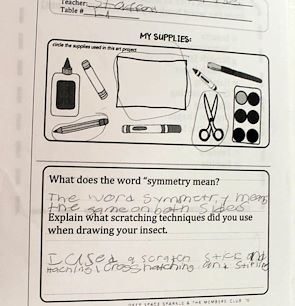 Teacher:
Table #
MY SUPPLIES:
circle the supplies used in this art project
What does the word "symmetry mean?
The word Symmetry means
the same on both sides
Explain what scratching techniques did you use
when drawing your insect.
I used a scratch stick and
haching, crosshatching and
DEEP SPACE SPARKLE & THE MEMBERS CLUB